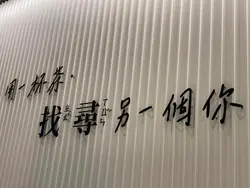 用一杯茶，
找尋另一個你